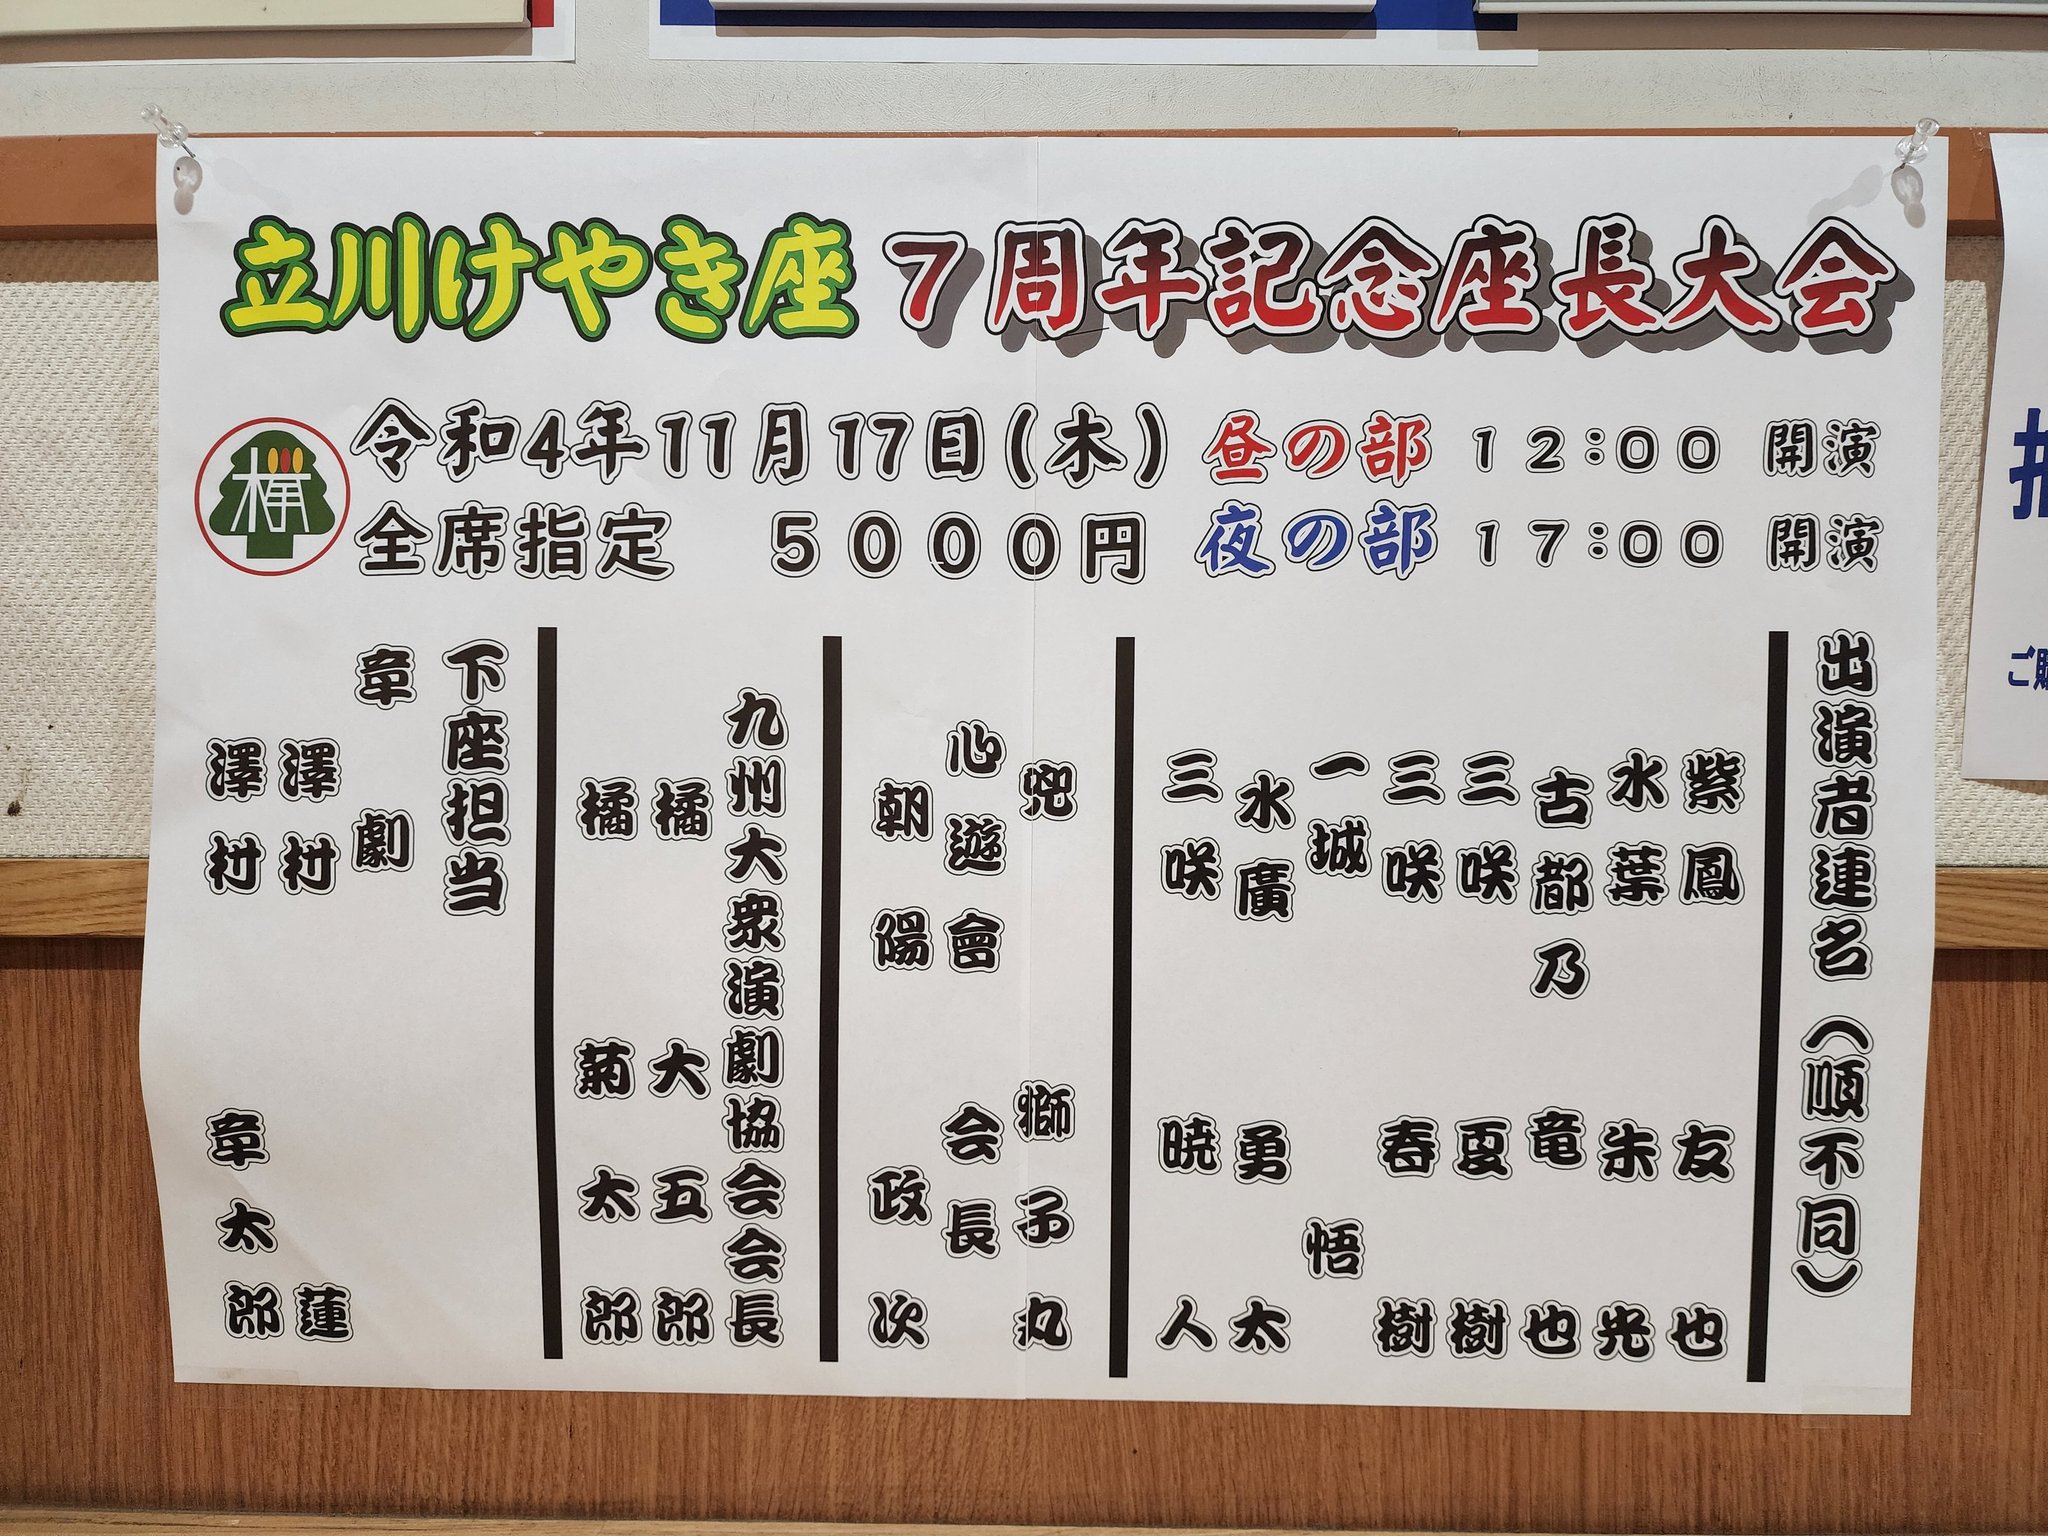 立川けやき座 7周年記念座長大会
欅
令和4年11月17日(木) 昼の部 12:00 開演
全席指定 5000円 夜の部 17:00 開演
出演者連名(順不同)
紫鳳 友也
水葉 朱光
古都乃 竜也
三咲 夏樹
三咲 春樹
一城 悟
水廣 勇太
三咲 暁人
兜 獅子丸
心遊會 会長
朝陽 政次
九州大衆演劇協会会長
橘 大五郎
橘 菊太郎
下座担当
章劇
澤村 蓮
澤村 章太郎
ご購